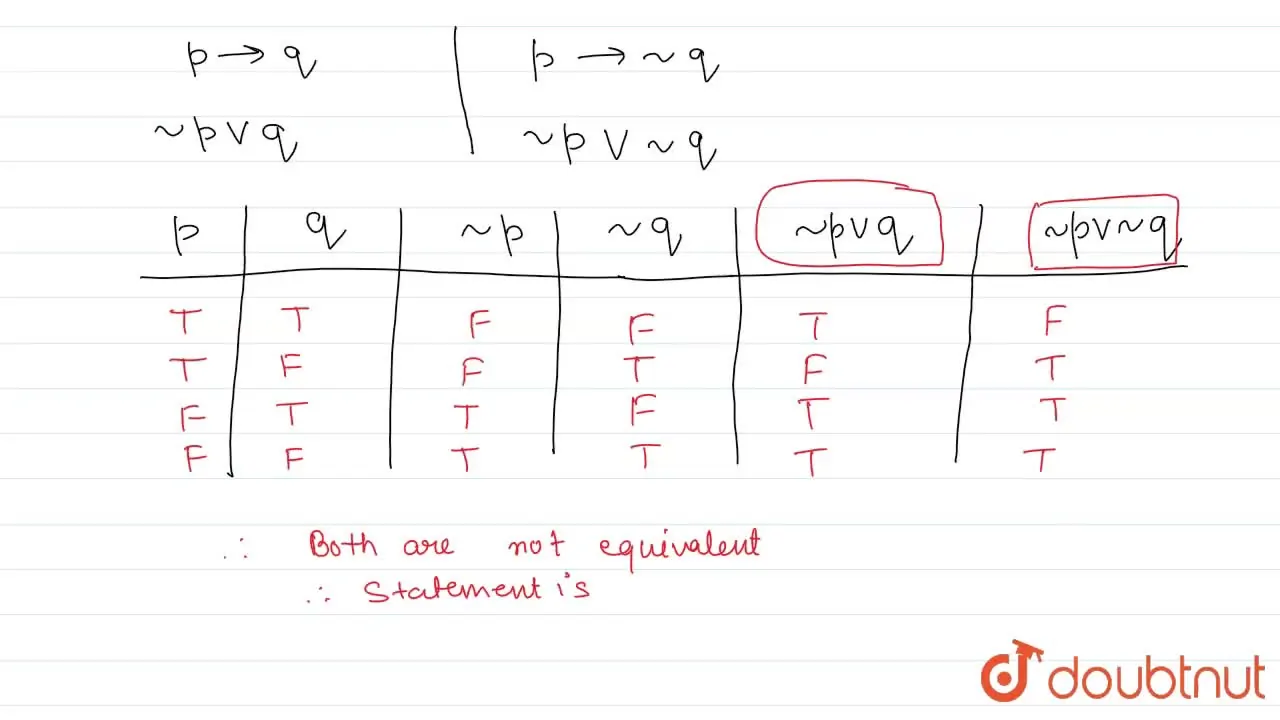 p → q | p → ~ q
~ p ∨ q | ~ p ∨ ~ q
p | q | ~ p | ~ q | ~ p ∨ q | ~ p ∨ ~ q
T | T | F | F | T | F
T | F | F | T | F | T
F | T | T | F | T | T
F | F | T | T | T | T
∴ Both are not equivalent
∴ Statement is
doubtnut